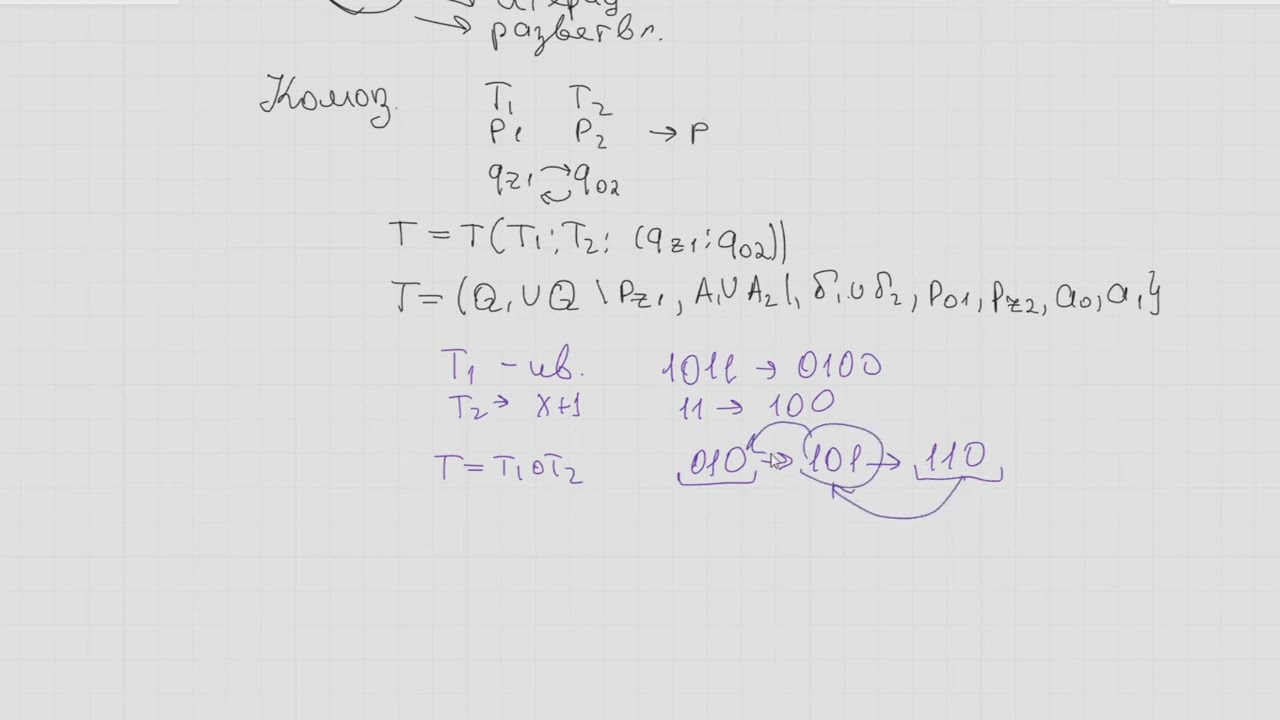 разветвл.
Композ.
T₁ T₂
P₁ P₂ → P
q_z₁ q₀₂
T = T(T₁; T₂; (q_z₁; q₀₂))
T = (Q₁ ∪ Q \ P_z₁, A₁ ∪ A₂ \, δ₁ ∪ δ₂, P₀₁, P_z₂, a₀, a₁}
T₁ – ив. 1011 → 0100
T₂ → x+1 11 → 100
T = T₁ ∘ T₂ 010 → 101 → 110